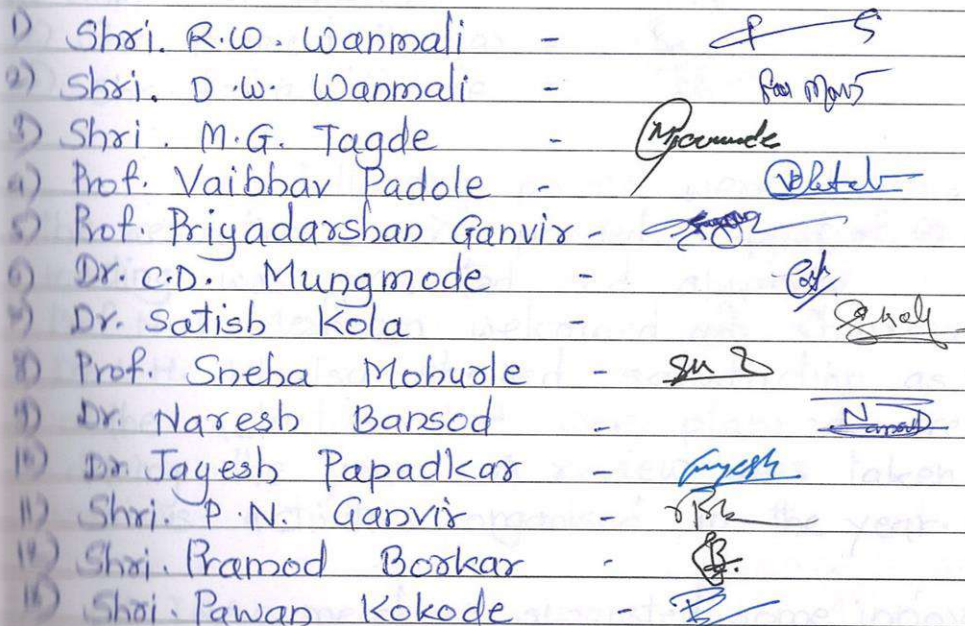 1) Shri. R.W. Wanmali -
2) Shri. D.W. Wanmali -
3) Shri. M.G. Tagde -
4) Prof. Vaibhav Padole -
5) Prof Priyadarshan Ganvir -
6) Dr. C.D. Mungmode -
7) Dr. Satish Kola -
8) Prof. Sneha Mohurle -
9) Dr. Naresh Bansod -
10) Dr. Jayesh Papadkar - Jayesh
11) Shri. P.N. Ganvir -
12) Shri. Pramod Borkar -
13) Shri. Pawan Kokode -